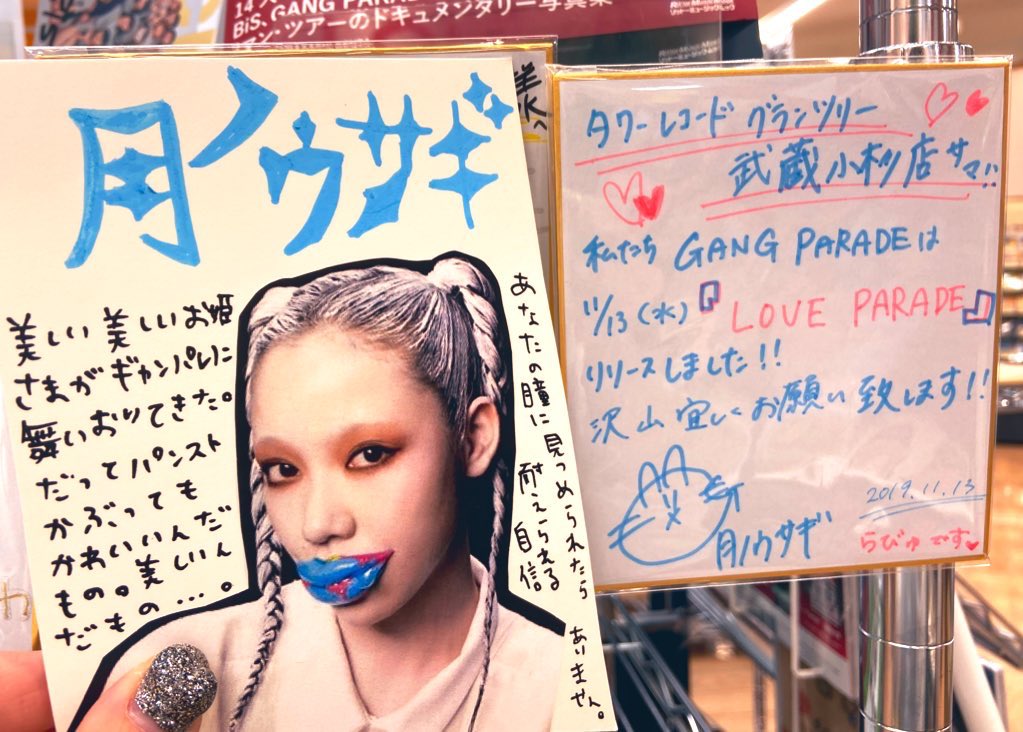 14
BiS, GANG PARADE
ツアーのドキュメンタリー写真集
月ノウサギ
美しい美しいお姫
さまがギャンパレに
舞いおりてきた。
だってパンスト
かぶっても
かわいいんだ
もの。美しいん
だもの…。
あなたの瞳に見つめられたら
耐えられる
自信
ありません。
タワーレコード グランツリー
武蔵小杉店サマ!!
私たち GANG PARADEは
11/13(水)『LOVE PARADE』
リリースしました!!
沢山宜しくお願い致します!!
月ノウサギ
2019.11.13
らびゅです